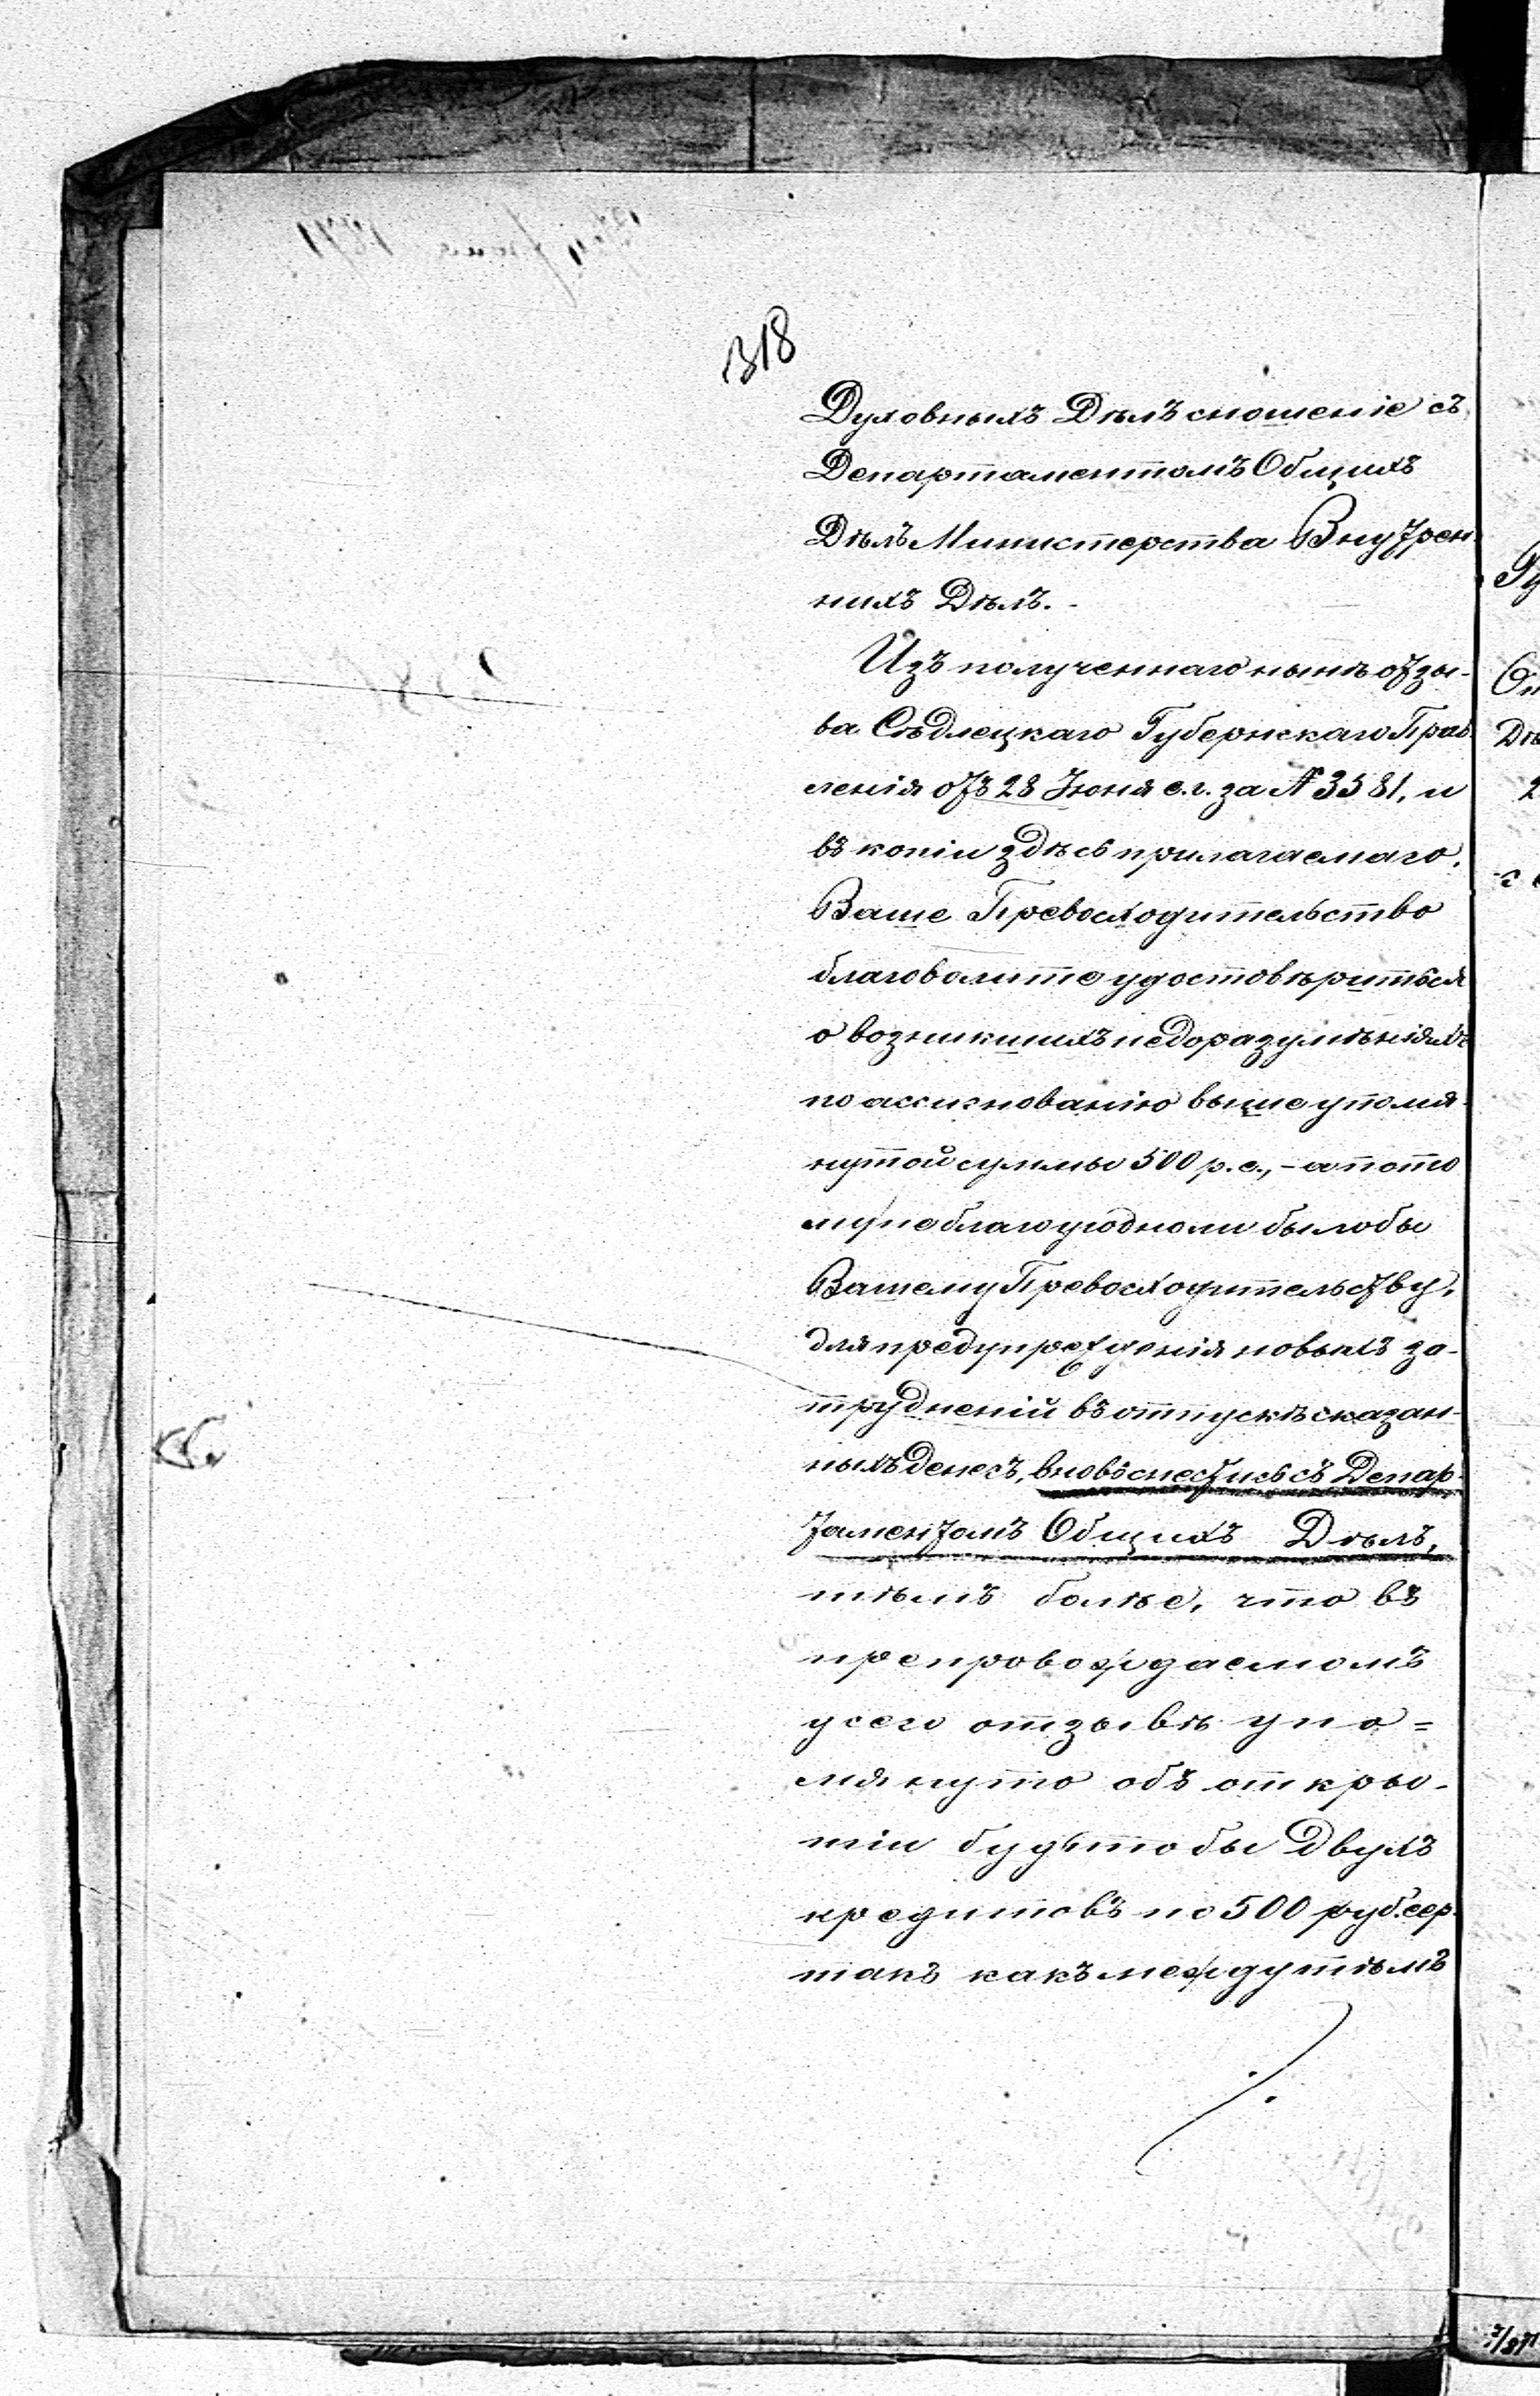 318
Духовныхъ Дѣлъ сношеніе съ
Департаментомъ Общихъ
Дѣлъ Министерства Внутрен
нихъ Дѣлъ.-
Изъ полученнаго нынѣ отзы-
ва Сѣдлецкаго Губернскаго Прав
ленія отъ 28 Іюня с.г. за № 3581, и
въ копіи здѣсь прилагаемаго,
Ваше Превосходительство
благоволите удостовѣриться
о возникшихъ недоразумѣніяхъ
по ассигнованію вышеупомя-
нутой суммы 500 р.с.,- а пото
му не благоугодно ли было бы
Вашему Превосходительству,
для предупрежденія новыхъ за-
трудненій въ отпускѣ сказан-
ныхъ денегъ, вновь снестись съ Депар-
таментомъ Общихъ Дѣлъ,
тѣмъ болѣе, что въ
препровождаемомъ
у сего отзывѣ упо=
мянуто объ откры-
тіи будьто бы двухъ
кредитовъ по 500 руб. сер.
такъ какъ между тѣмъ
./.